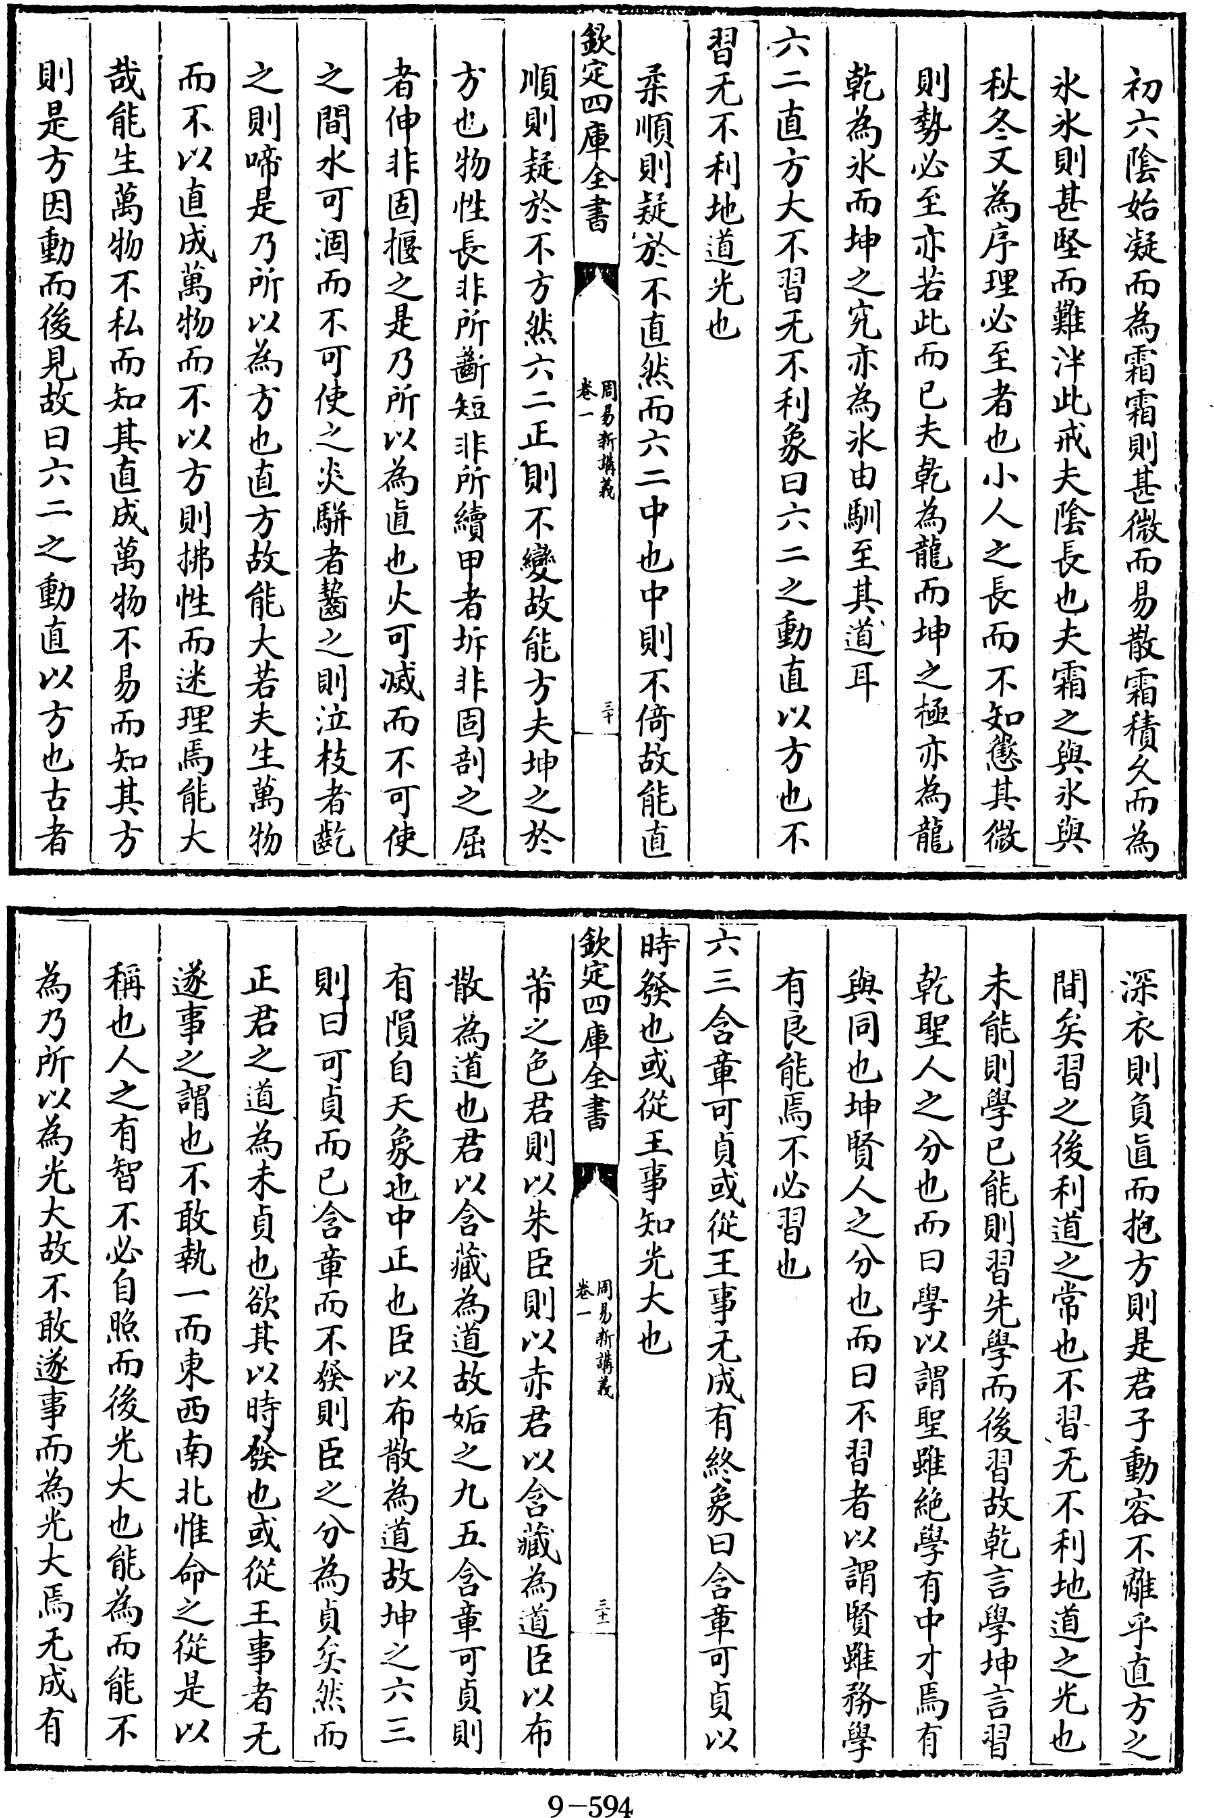 初六陰始凝而為霜霜則甚微而易散霜積久而為
氷氷則甚堅而難泮此戒夫陰長也夫霜之與氷與
秋冬文為序理必至者也小人之長而不知懲其微
則勢必至亦若此而已夫乾為龍而坤之極亦為龍
乾為氷而坤之究亦為氷由馴至其道耳
六二直方大不習无不利象曰六二之動直以方也不
習无不利地道光也
柔順則疑於不直然而六二中也中則不倚故能直
欽定四庫全書
周易新講義
卷一
三十
順則疑於不方然六二正則不變故能方夫坤之於
方也物性長非所斷短非所續甲者坼非固剖之屈
者伸非固揠之是乃所以為直也火可滅而不可使
之間水可涸而不可使之炎駢者齧之則泣枝者齕
之則啼是乃所以為方也直方故能大若夫生萬物
而不以直成萬物而不以方則拂性而迷理焉能大
哉能生萬物不私而知其直成萬物不易而知其方
則是方因動而後見故曰六二之動直以方也古者
深衣則負直而抱方則是君子動容不離乎直方之
間矣習之後利道之常也不習无不利地道之光也
未能則學已能則習先學而後習故乾言學坤言習
乾聖人之分也而曰學以謂聖雖絶學有中才焉有
與同也坤賢人之分也而曰不習者以謂賢雖務學
有良能焉不必習也
六三含章可貞或從王事无成有終象曰含章可貞以
時發也或從王事知光大也
欽定四庫全書
周易新講義
卷一
三十一
芾之色君則以朱臣則以赤君以含藏為道臣以布
散為道也君以含藏為道故姤之九五含章可貞則
有隕自天象也中正也臣以布散為道故坤之六三
則曰可貞而已含章而不發則臣之分為貞矣然而
正君之道為未貞也欲其以時發也或從王事者无
遂事之謂也不敢執一而東西南北惟命之從是以
稱也人之有智不必自照而後光大也能為而能不
為乃所以為光大故不敢遂事而為光大焉无成有
9-594